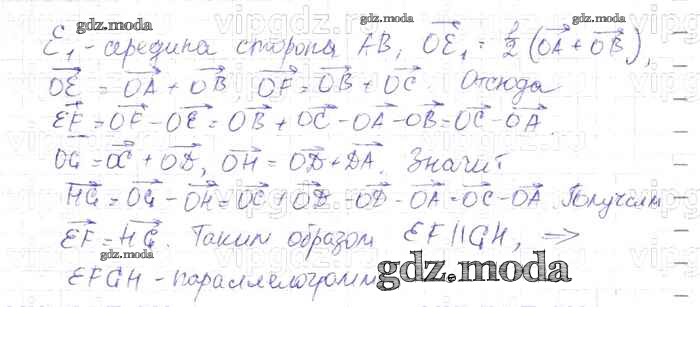 E₁ - середина стороны AB, OE₁ = 1/2 (OA + OB),
OE = OA + OB, OF = OB + OC. Отсюда
EF = OF - OE = OB + OC - OA - OB = OC - OA.
OG = OC + OD, OH = OD + DA. Значит
HG = OG - OH = OC + OD - OD - OA = OC - OA. Получим
EF = HG. Таким образом EF || GH, =>
EFGH - параллелограмм
gdz.moda